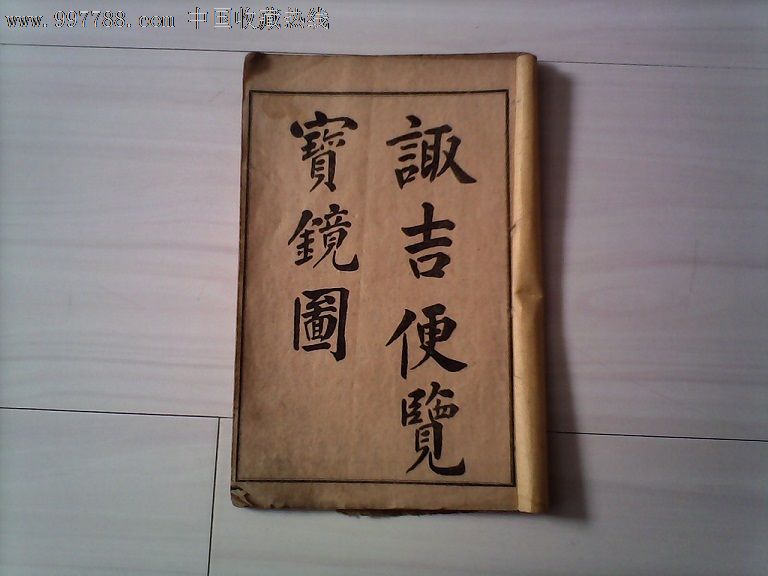 www.997788.com 中国收藏热线
諏吉便覽
寶鏡圖